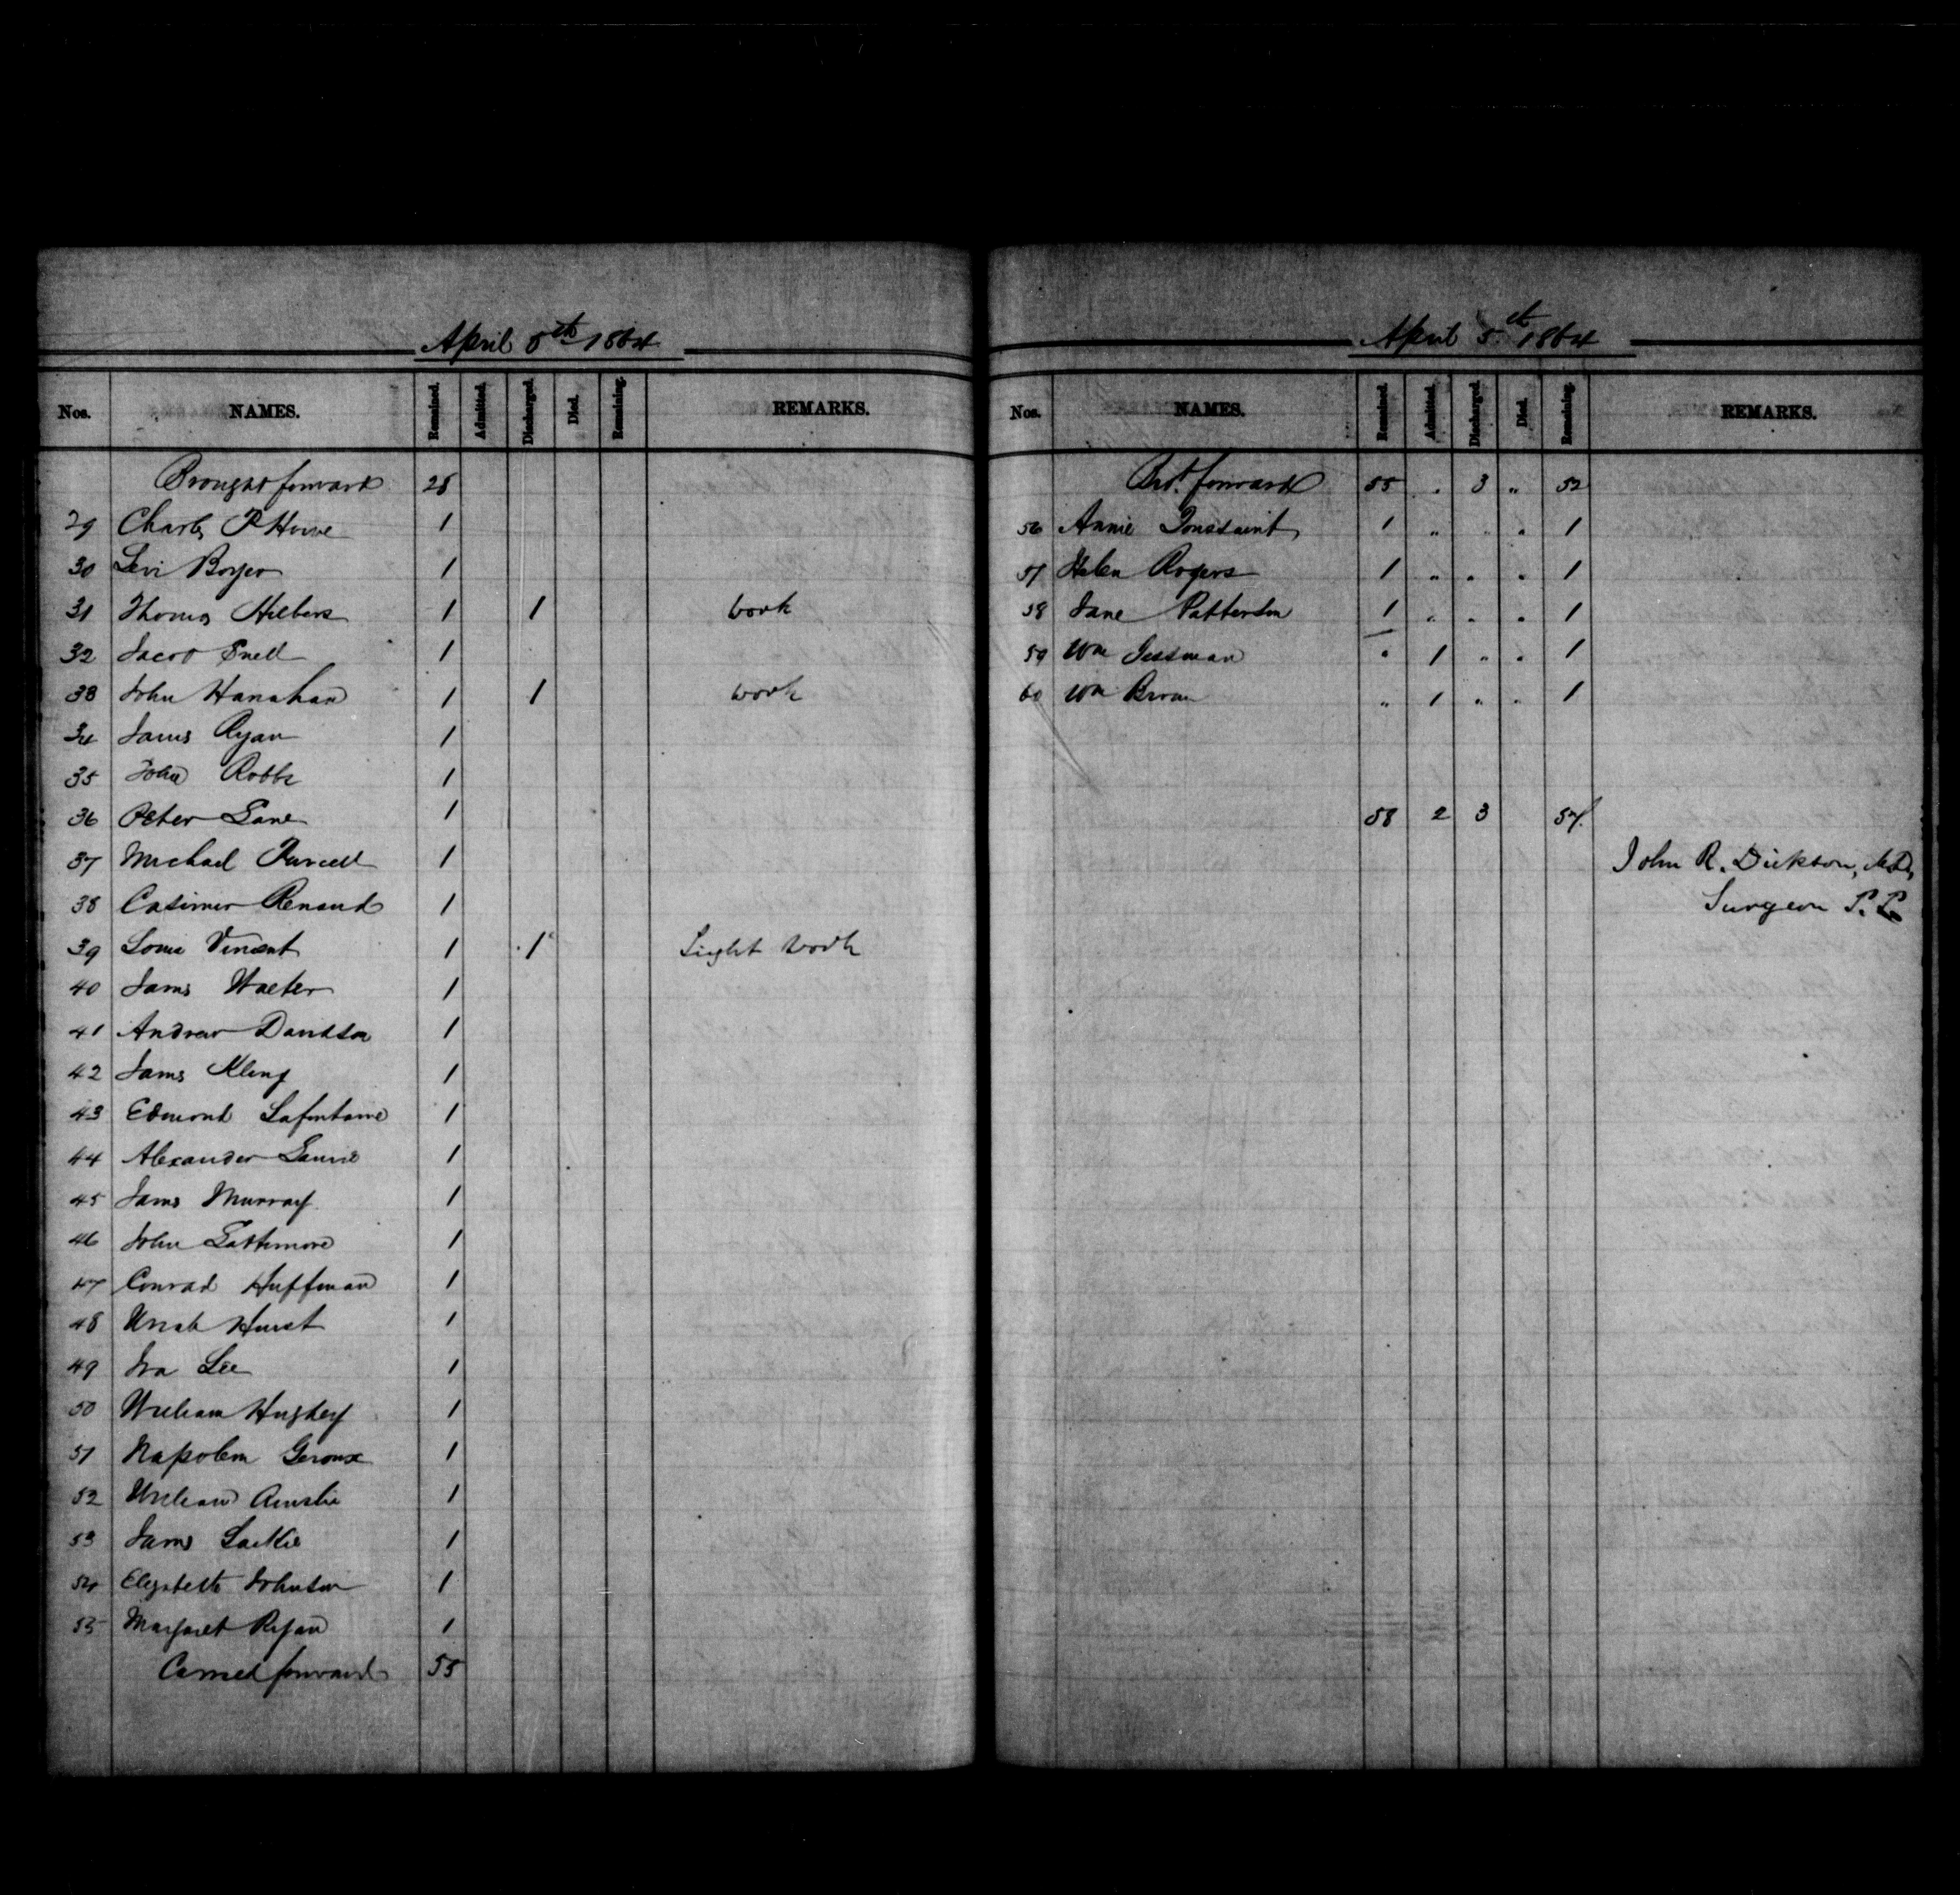 April 5th 1864
Nos. NAMES. Remained. Admitted. Discharged. Died. Remaining. REMARKS.
Brought forward 28
29 Charles P Howe 1
30 Levi Boyer 1
31 Thomas Hilbers 1 1 work
32 Jacob Snell 1
33 John Hanahan 1 1 work
34 James Ryan 1
35 John Robbs 1
36 Peter Lane 1
37 Michael Purcell 1
38 Casimer Renaud 1
39 Louis Vincent 1 1 Light work
40 James Walter 1
41 Andrew Davidson 1
42 James Kling 1
43 Edmond Lafontaine 1
44 Alexander Laurie 1
45 James Murray 1
46 John Lattimore 1
47 Conrad Huffman 1
48 Uriah Hurst 1
49 Ira Lee 1
50 William Hughey 1
51 Napoleon Geroux 1
52 William Ainslie 1
53 James Lackie 1
54 Elizabeth Johnston 1
55 Margaret Ryan 1
Carried forward 55
April 5th 1864
Nos. NAMES. Remained. Admitted. Discharged. Died. Remaining. REMARKS.
Brt. forward 55 " 3 " 52
56 Annie Toussaint 1 " " " 1
57 Helen Rogers 1 " " " 1
58 Jane Patterson 1 " " " 1
59 Wm Gessman " 1 " " 1
60 Wm Brown " 1 " " 1
58 2 3 57.
John R. Dickson, M.D.,
Surgeon P. P.